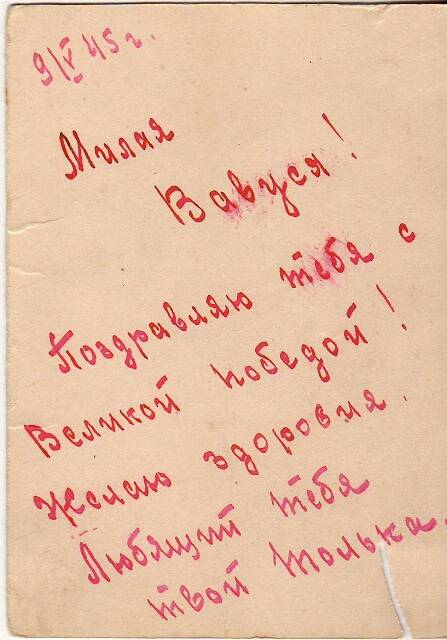 9/V 45 г.
Милая
Вавуся!
Поздравляю тебя с
Великой победой!
Желаю здоровия.
Любящий тебя
твой Толька